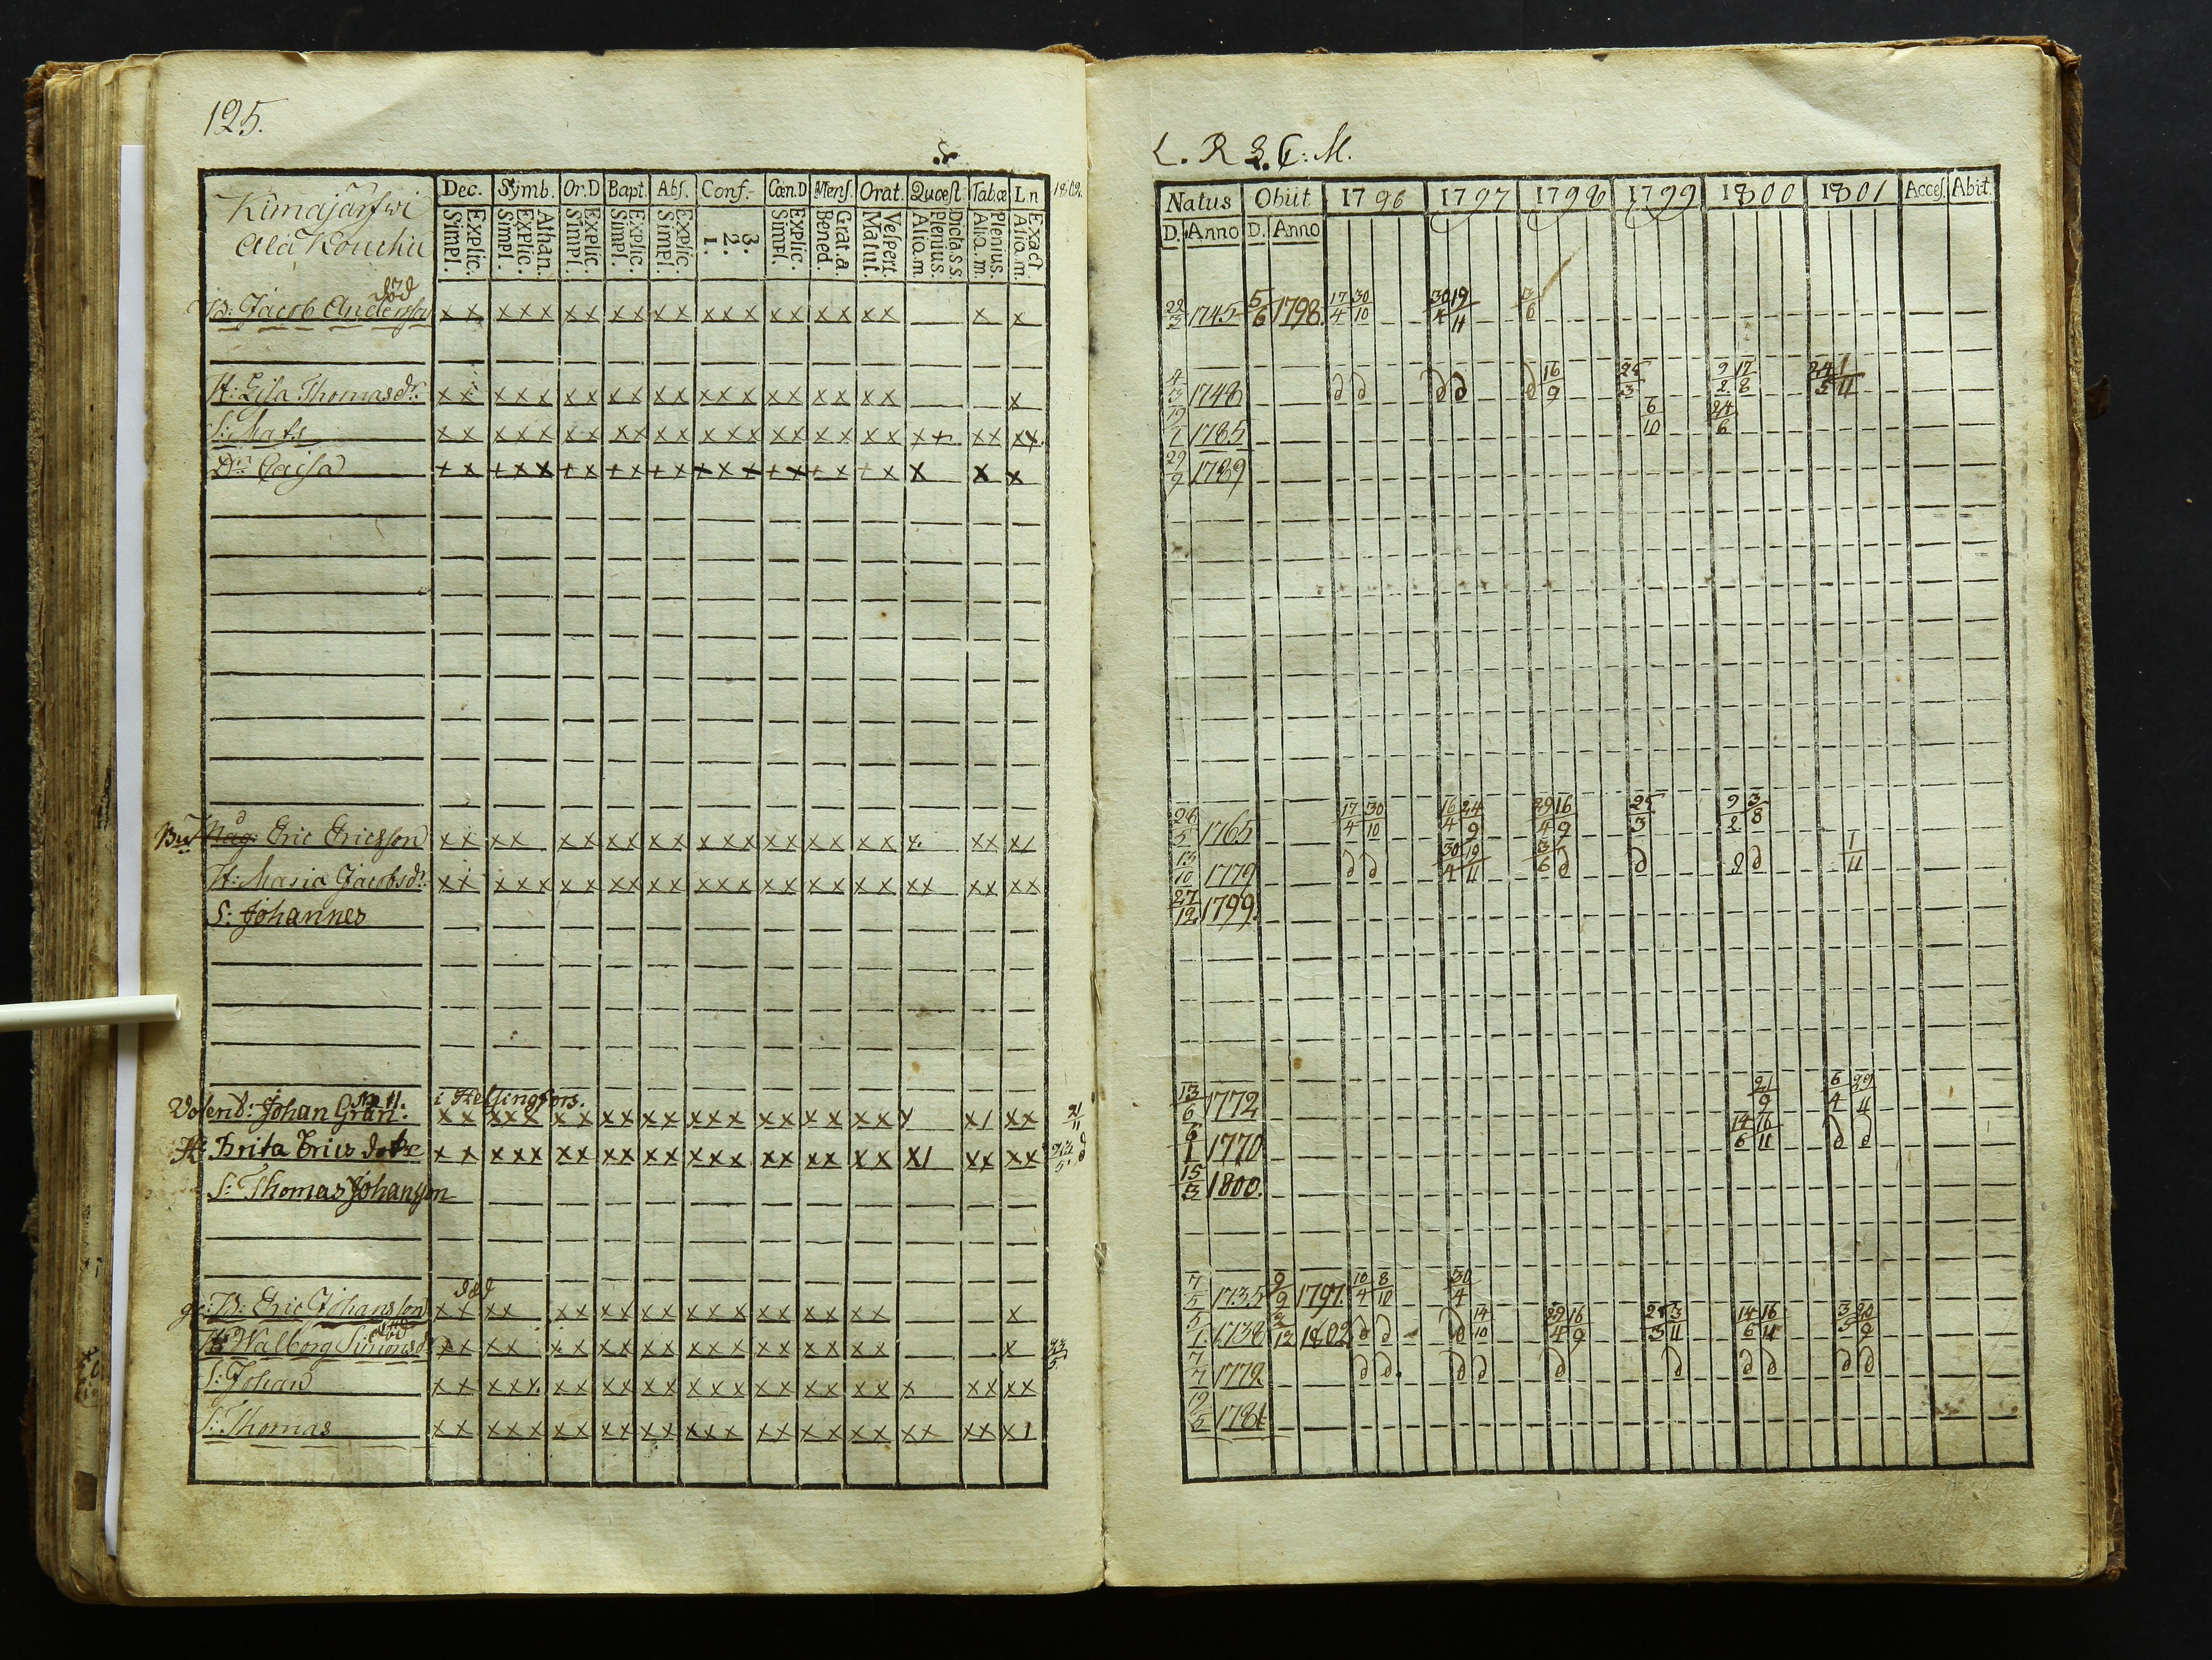 125.
L. R. S. C: M.
Dec. Symb. Or.D Bapt. Abs. Conf. Cœn.D Mens. Orat. Quœst. Tabœ Ln 1802.
Explic. Simpl. Athan. Explic. Simpl. Explic. Simpl. Explic. Simpl. Explic. Simpl. 3. 2. 1. Explic. Simpl. Grat.a. Bened. Vespert. Matut. Dicta s.s. Plenius. Alio.m. Plenius. Alio.m. Exact Alio.m.
Natus Obiit 1796 1797 1798 1799 1800 1801 Acces. Abit.
D. Anno D. Anno
Kimajärfwi
Ala Kouhu
död
B: Jacob Andersson x x x x x x x x x x x x x x x x x x x x x x 22/3 1745 5/6 1798. 17/4 30/10 30/4 19/11 3/6
H: Lisa Thomasdr. x x x x x x x x x x x x x x x x x x x x x 4/3 1748 d d d d d 16/9 25/3 9/2 17/8 24/5 1/11
S: Mats x x x x x x x x x x x x x x x x x x x x x x x x x x 19/7 1785 6/10 24/6
Dr. Caisa x x x x x x x x x x x x x x x x x x x x x x x 29/9 1789
Bd Eric Ericsson x x x x x x x x x x x x x x x x x x x x x x x 26/5 1765 17/4 30/10 16/4 24/9 29/4 16/9 25/3 9/2 3/8
H: Maria Jacobsdr. x x x x x x x x x x x x x x x x x x x x x x x x x x 13/10 1779 d d 30/4 19/11 3/6 d d d d 1/11
S: Johannes 27/12 1799.
i Helsingfors.
Johan Grán: x x x x x x x x x x x x x x x x x x x x y x / x x 21/11 13/6 1772 21/9 6/4 29/11
H: Brita Erics dotr x x x x x x x x x x x x x x x x x x x x x / x x x x 23/5 d 6/1 1770 14/6 16/11 d d
S: Thomas Johansson 15/3 1800.
död
B: Eric Johansson x x x x x x x x x x x x x x x x x x x x 7/5 1735 9/9 1797. 10/4 8/10 30/4
död
H: Walborg Simonsd. x x x x x x x x x x x x x x x x x x x x 23/5 5/1 1738 2/12 1802 d d d 14/10 29/4 16/9 25/3 3/11 14/6 16/11 3/5 20/9
S: Johan x x x x x x x x x x x x x x x x x x x x x x x x x 7/7 1772 d d d d d d d d d d
S: Thomas x x x x x x x x x x x x x x x x x x x x x x x x x / 19/5 1781